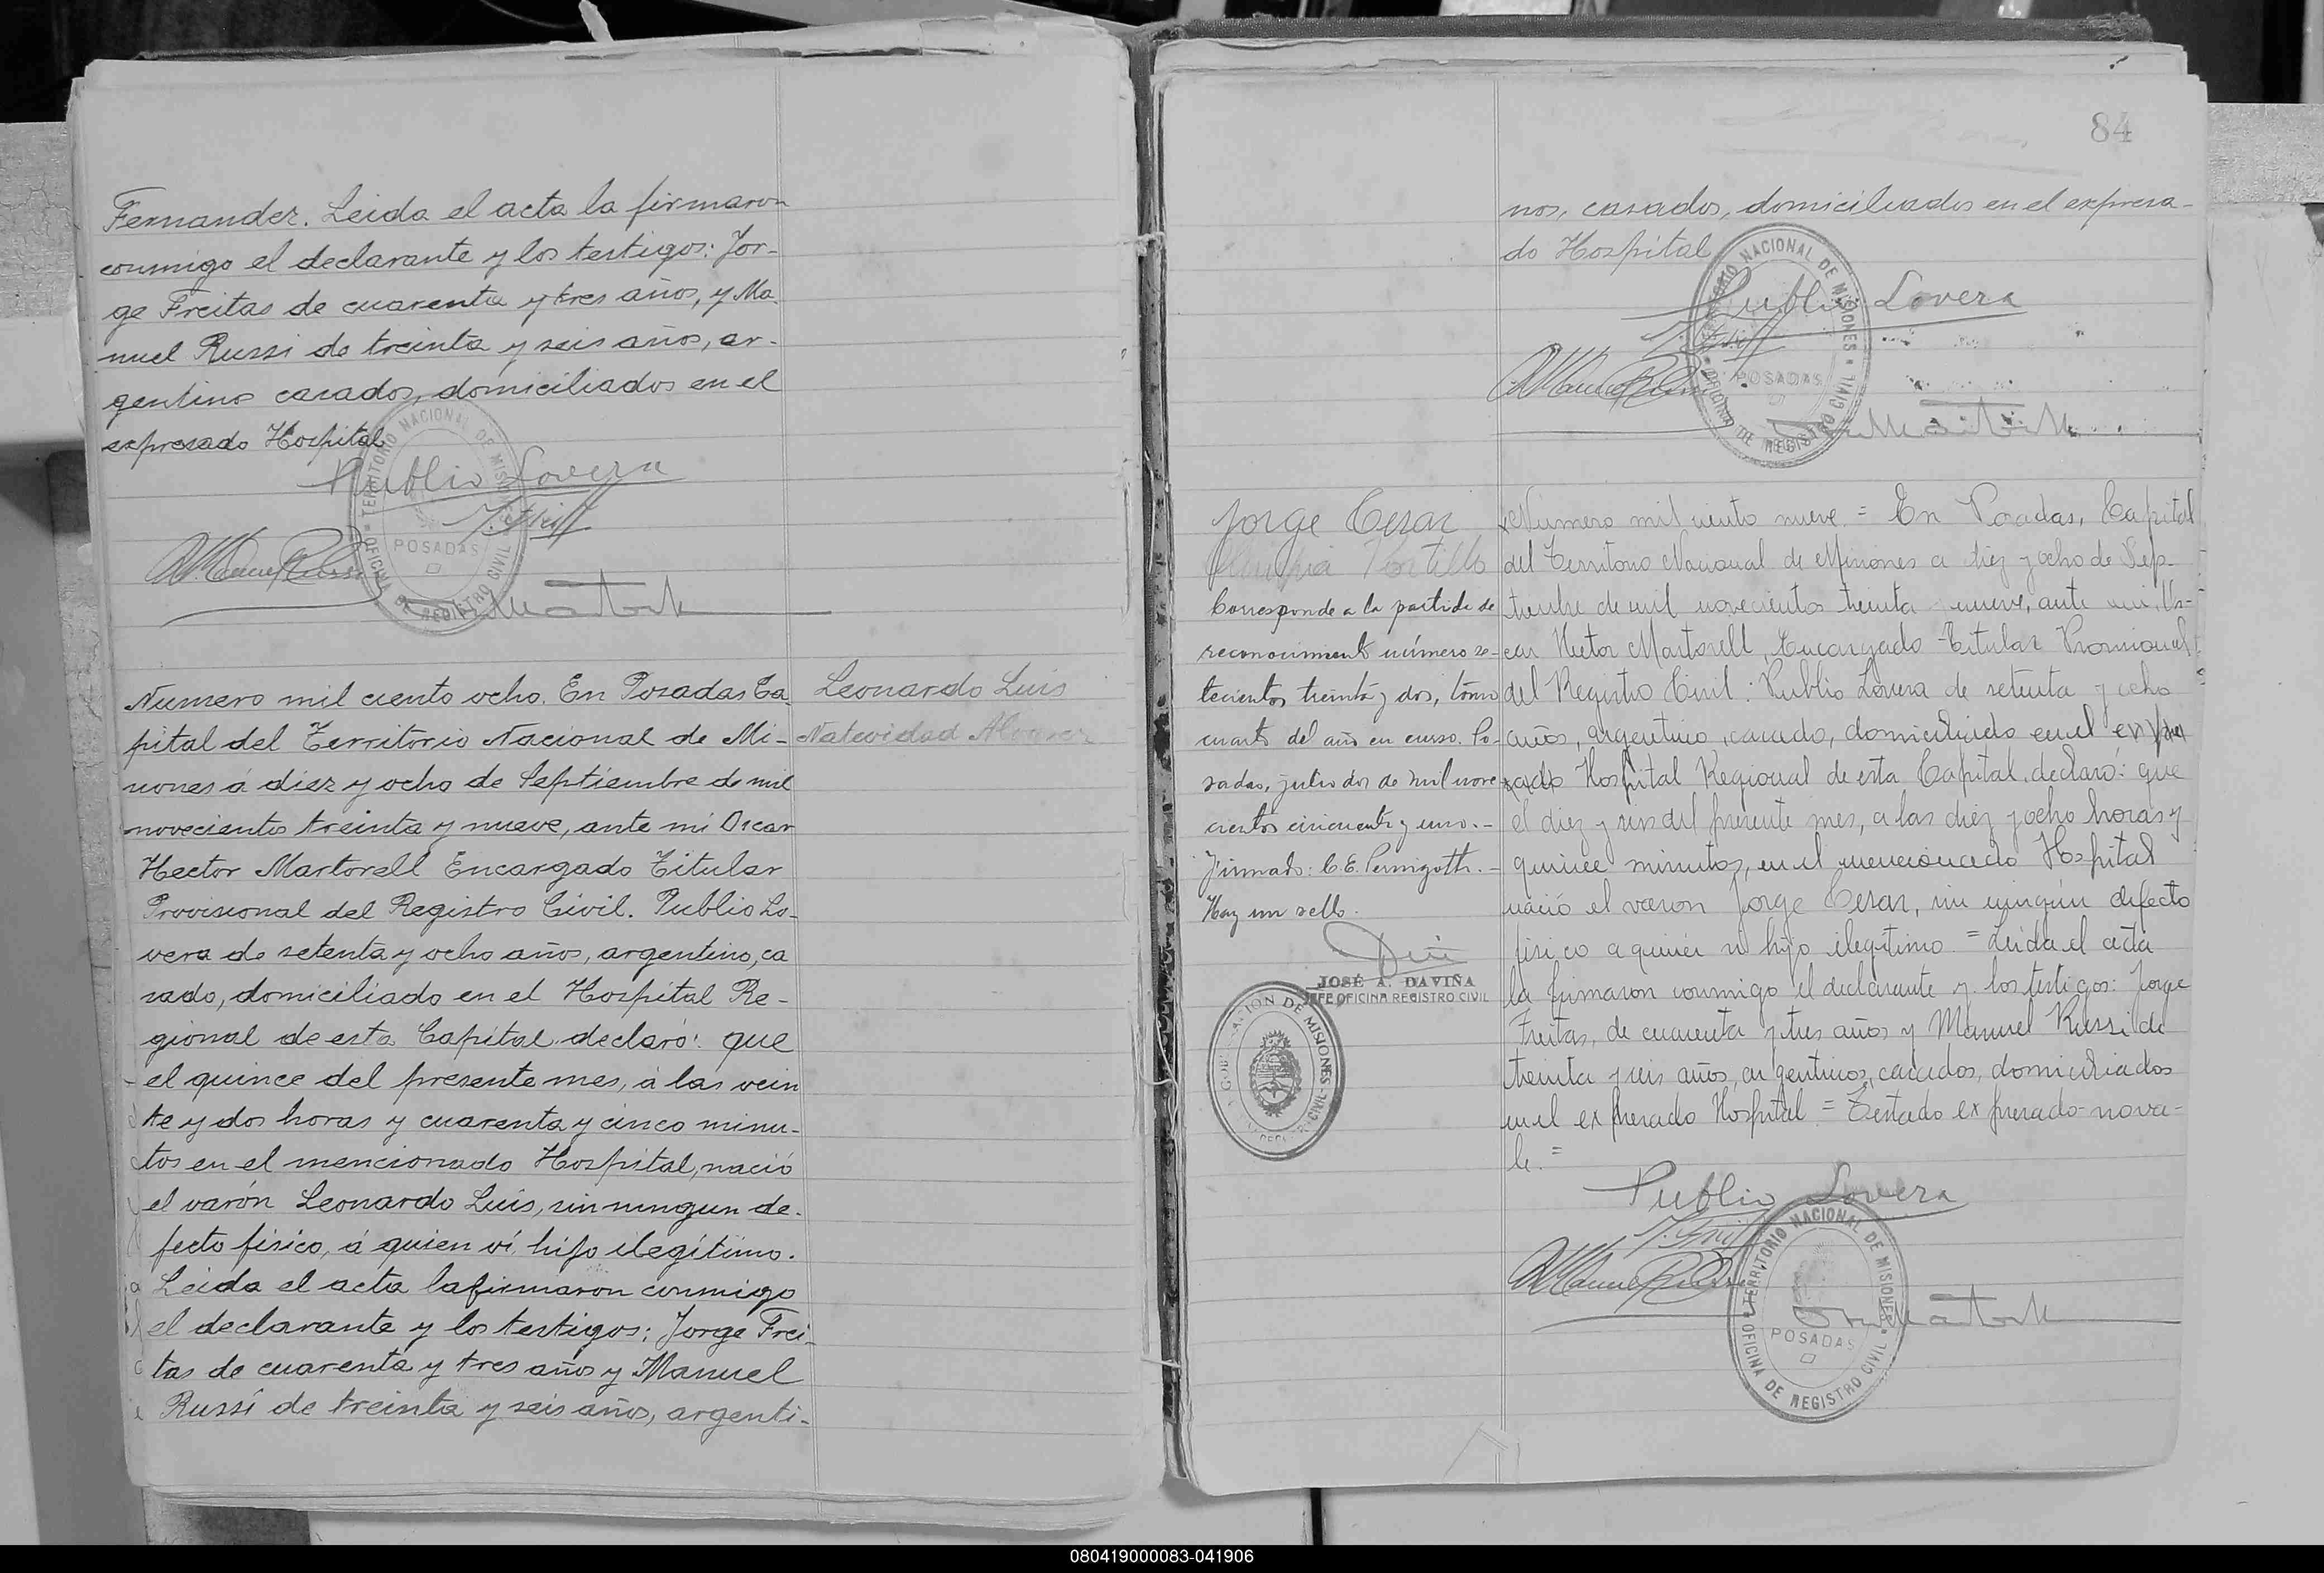 Fernandez. Leida el acta la firmaron
conmigo el declarante y los testigos: Jor-
ge Freitas de cuarenta y tres años, y Ma-
nuel Russi de treinta y seis años, ar-
gentino casados, domiciliados en el
expresado Hospital
Publio Lovera
TERRITORIO NACIONAL DE MISIONES
OFICINA DE REGISTRO CIVIL
POSADAS
Numero mil ciento ocho. En Posadas Ca-
pital del Territorio Nacional de Mi-
siones á diez y ocho de Septiembre de mil
novecientos treinta y nueve, ante mi Oscar
Hector Martorell Encargado Titular
Provisional del Registro Civil. Publio Lo-
vera de setenta y ocho años, argentino, ca
sado, domiciliado en el Hospital Re-
gional de esta Capital declaró: que
el quince del presente mes, á las vein
te y dos horas y cuarenta y cinco minu-
tos en el mencionado Hospital, nació
el varón Leonardo Luis, sin ningun de-
fecto fisico, á quien ví, hijo ilegítimo.
Leida el acta la firmaron conmigo
el declarante y los testigos: Jorge Frei-
tas de cuarenta y tres años y Manuel
Russi de treinta y seis años, argenti-
Leonardo Luis
Natividad Alvarez
84
nos, casados, domiciliados en el expresa-
do Hospital
Publio Lovera
TERRITORIO NACIONAL DE MISIONES
OFICINA DE REGISTRO CIVIL
POSADAS
Jorge Cesar
Portillo
Corresponde a la partida de
reconocimiento número se-
tecientos treinta y dos, tomo
cuarto del año en curso. Po-
sadas, julio dos de mil nove
cientos cincuenta y uno.-
Firmado: C. E.
Hay un sello.
JOSÉ A. DAVIÑA
JEFE OFICINA REGISTRO CIVIL
Numero mil ciento nueve = En Posadas, Capital
del Territorio Nacional de Misiones a diez y ocho de Sep-
tiembre de mil novecientos treinta nueve, ante mi, Os-
car Hector Martorell, Encargado Titular Provisional
del Registro Civil: Publio Lovera de setenta y ocho
años, argentino, casado, domiciliado en el expre
sado Hospital Regional de esta Capital, declaró: que
el diez y seis del presente mes, a las diez y ocho horas y
quince minutos, en el mencionado Hospital
nació el varon Jorge Cesar, sin ningún defecto
fisico a quien vi hijo ilegitimo = Leida el acta
la firmaron conmigo el declarante y los testigos: Jorge
Freitas, de cuarenta y tres años y Manuel Russi de
treinta y seis años, argentinos, casados, domiciliados
en el expresado Hospital = Testado expresado-no va-
le. =
Publio Lovera
TERRITORIO NACIONAL DE MISIONES
OFICINA DE REGISTRO CIVIL
POSADAS
080419000083-041906